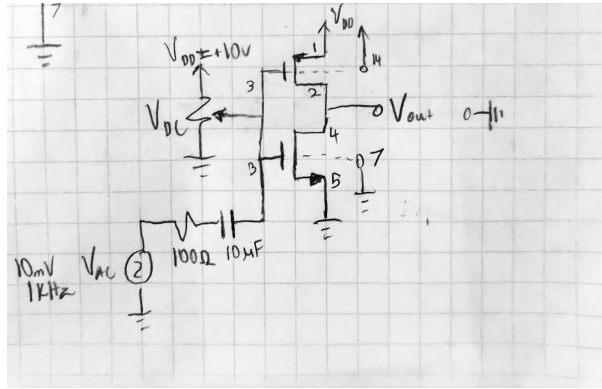 7
VDD
VDD = +10V
1
14
3
2
VDC
Vout
4
3
7
5
100Ω 10µF
10mV VAC
1KHz